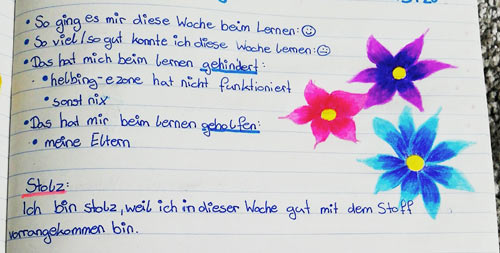 • So ging es mir diese Woche beim Lernen: ☺
• So viel/so gut konnte ich diese Woche lernen: ☺
• Das hat mich beim lernen gehindert:
• helbing-ezone hat nicht funktioniert
• sonst nix
• Das hat mir beim lernen geholfen:
• meine Eltern
Stolz:
Ich bin stolz, weil ich in dieser Woche gut mit dem Stoff
vorrangekommen bin.